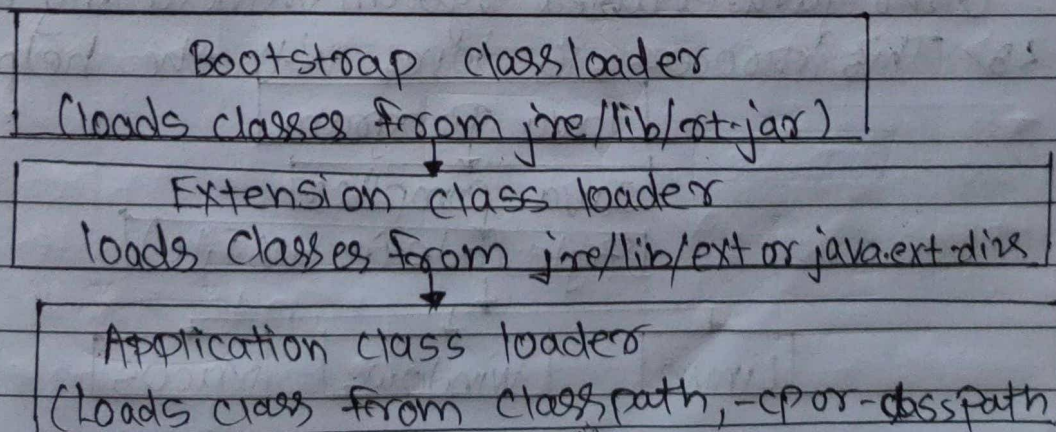 Bootstrap classloader
(loads classes from jre/lib/rt.jar)
Extension class loader
loads Classes from jre/lib/ext or java.ext.dirs
Application class loader
(Loads class from classpath, -cp or -classpath